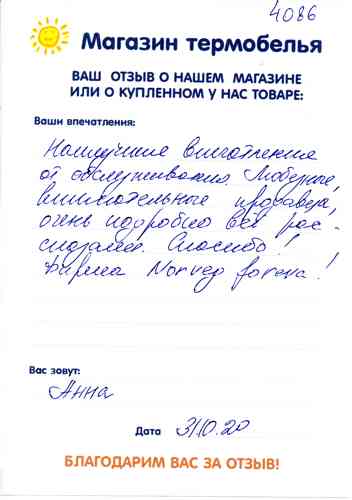 4086
Магазин термобелья
ВАШ ОТЗЫВ О НАШЕМ МАГАЗИНЕ
ИЛИ О КУПЛЕННОМ У НАС ТОВАРЕ:
Ваши впечатления:
Наилучшие впечатления
от обслуживания. Любезные,
внимательные продавцы,
очень подробно всё рас-
сказали. Спасибо!
Фирма Norveg forever!
Вас зовут:
Анна
Дата 31.10.20
БЛАГОДАРИМ ВАС ЗА ОТЗЫВ!